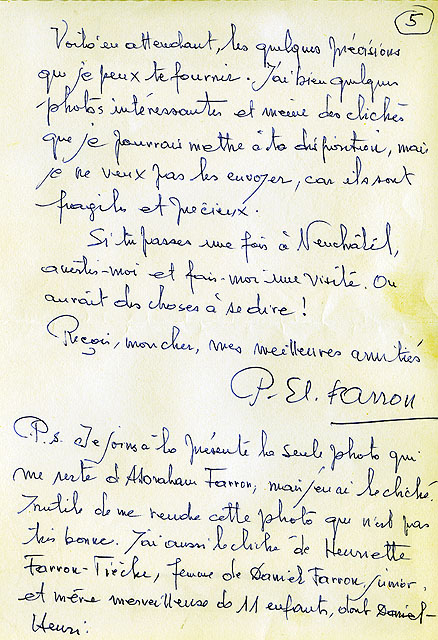 5
Voilà en attendant, les quelques précisions
que je peux te fournir. J'ai bien quelques
photos intéressantes et même des clichés
que je pourrais mettre à ta disposition, mais
je ne veux pas les envoyer, car ils sont
fragiles et précieux.
Si tu passes une fois à Neuchâtel,
avertis-moi et fais-moi une visite. On
aurait des choses à se dire !
Reçois, mon cher, mes meilleures amitiés
P. El. Farron
P.S. Je joins à la présente la seule photo qui
me reste d'Abraham Farron, mais j'en ai le cliché.
Inutile de me rendre cette photo qui n'est pas
très bonne. J'ai aussi le cliché de Henriette
Farron-Tièche, femme de Daniel Farron junior,
et mère merveilleuse de 11 enfants, dont Daniel-
Henri.